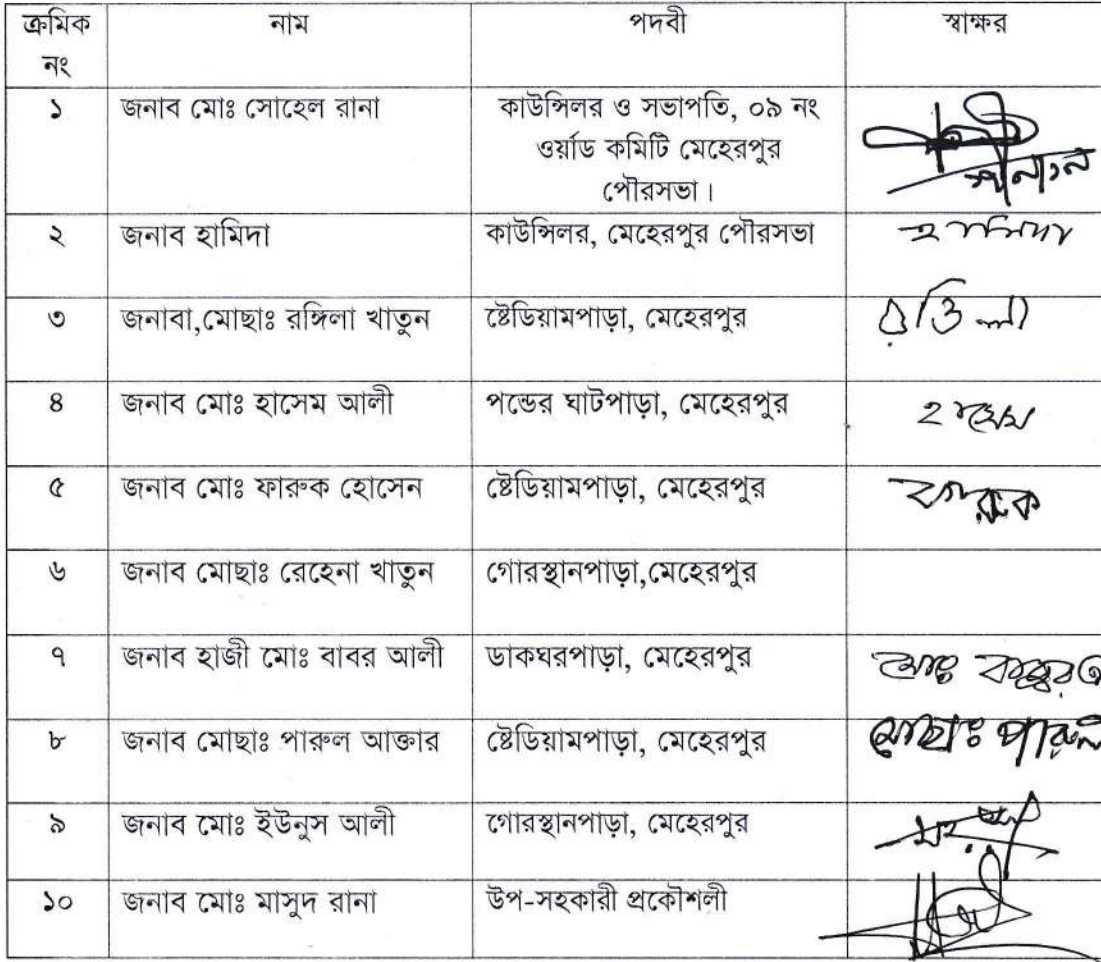 ক্রমিক নং নাম পদবী স্বাক্ষর
১ জনাব মোঃ সোহেল রানা কাউন্সিলর ও সভাপতি, ০৯ নং
ওর্য়াড কমিটি মেহেরপুর
পৌরসভা।
২ জনাব হামিদা কাউন্সিলর, মেহেরপুর পৌরসভা হামিদা
৩ জনাবা,মোছাঃ রঙ্গিলা খাতুন ষ্টেডিয়ামপাড়া, মেহেরপুর
৪ জনাব মোঃ হাসেম আলী পন্ডের ঘাটপাড়া, মেহেরপুর
৫ জনাব মোঃ ফারুক হোসেন ষ্টেডিয়ামপাড়া, মেহেরপুর ফারুক
৬ জনাব মোছাঃ রেহেনা খাতুন গোরস্থানপাড়া,মেহেরপুর
৭ জনাব হাজী মোঃ বাবর আলী ডাকঘরপাড়া, মেহেরপুর মোঃ
৮ জনাব মোছাঃ পারুল আক্তার ষ্টেডিয়ামপাড়া, মেহেরপুর মোছাঃ পারুল
৯ জনাব মোঃ ইউনুস আলী গোরস্থানপাড়া, মেহেরপুর
১০ জনাব মোঃ মাসুদ রানা উপ-সহকারী প্রকৌশলী